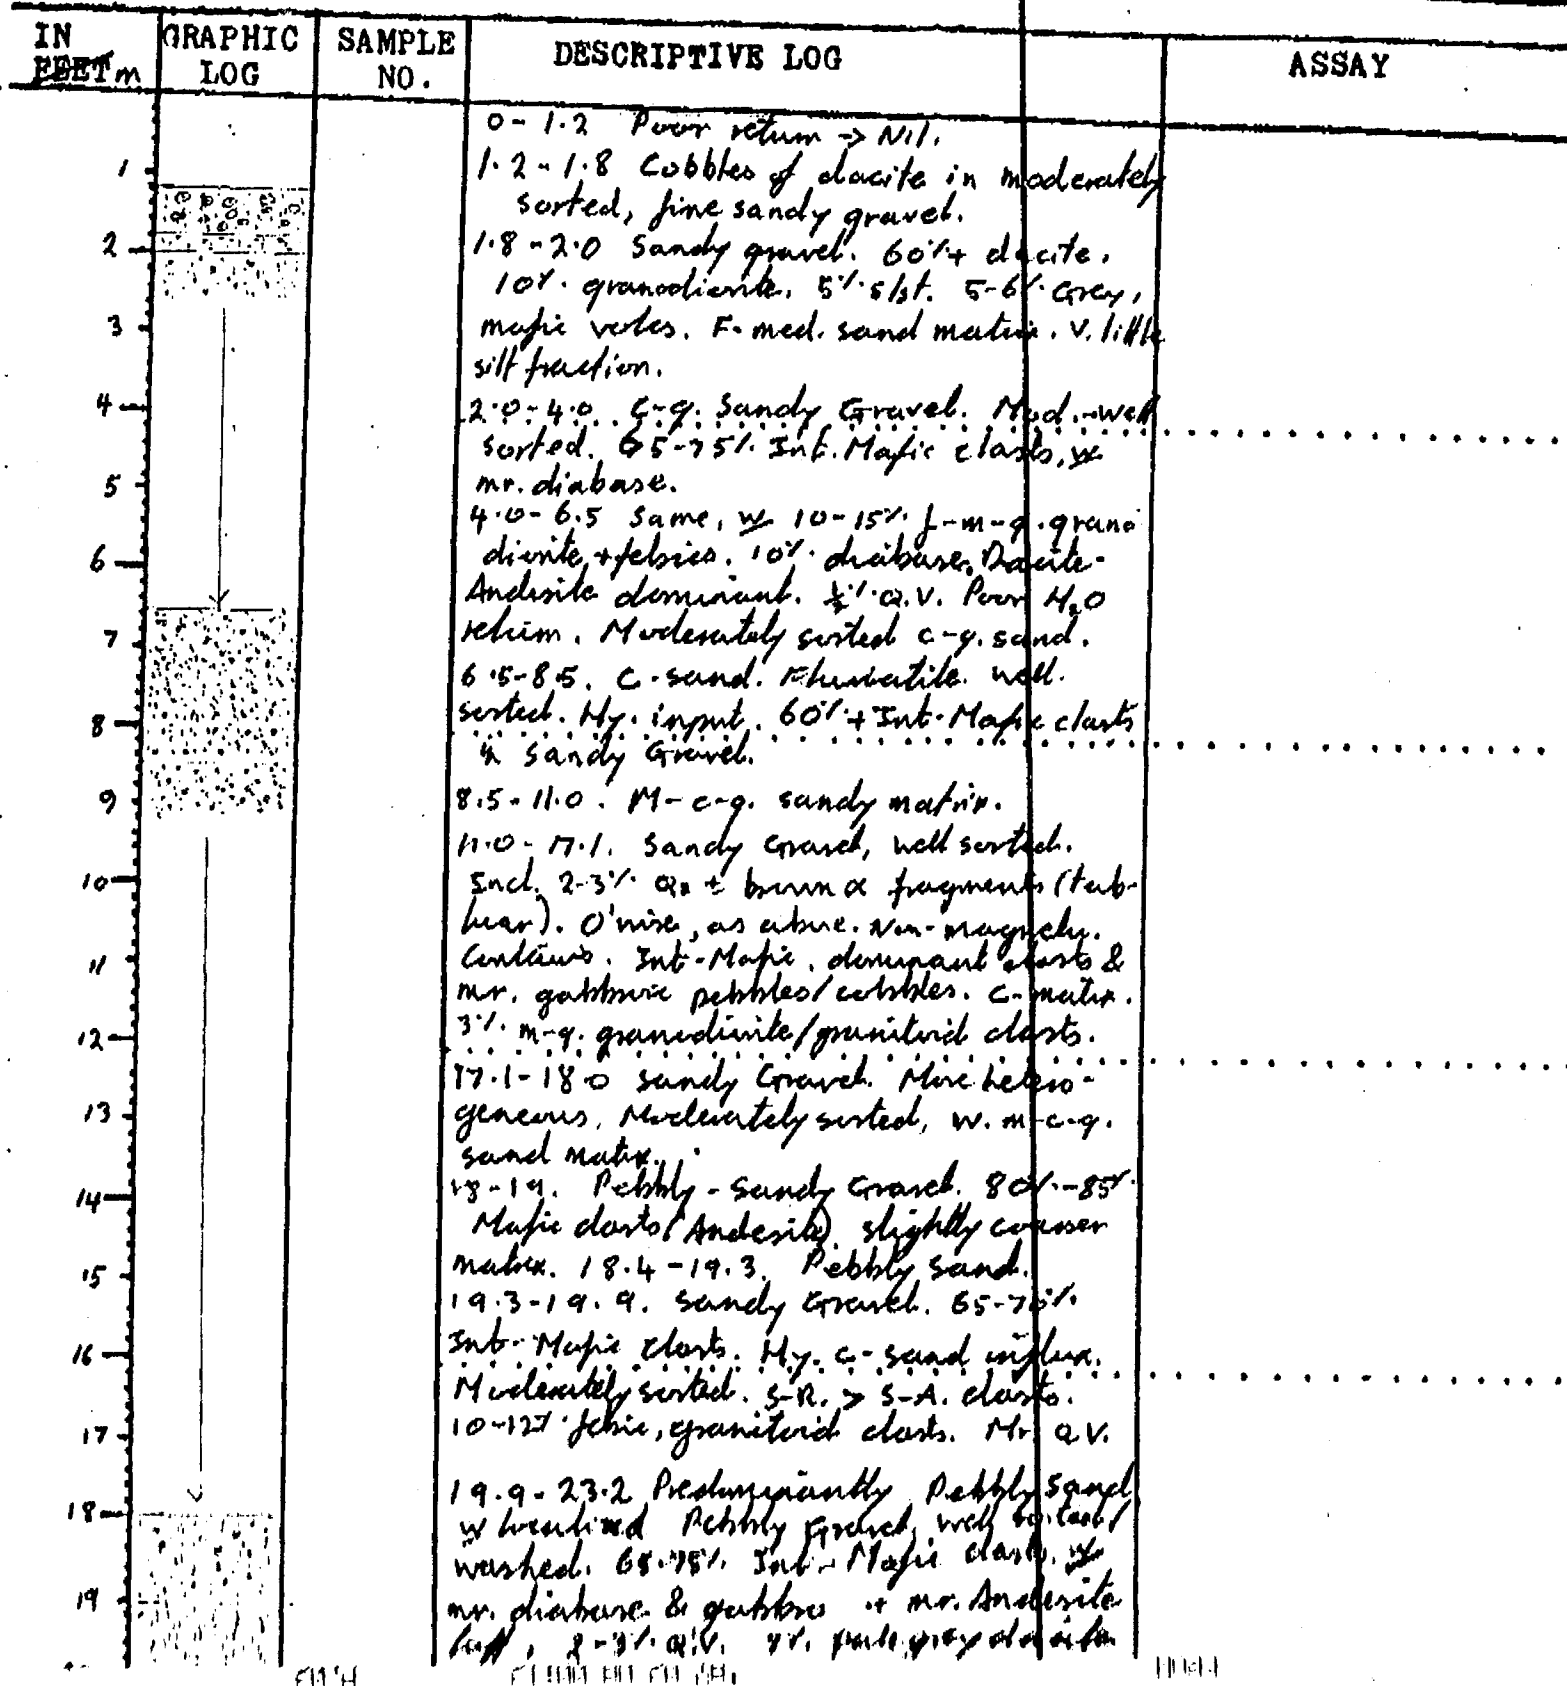 IN GRAPHIC SAMPLE DESCRIPTIVE LOG ASSAY
FEET m LOG NO.
0-1.2 Poor return → Nil.
1.2-1.8 Cobbles of dacite in moderately
sorted, fine sandy gravel.
1.8-2.0 Sandy gravel. 60%+ dacite.
10% granodiorite. 5% s/st. 5-6% Grey,
mafic volcs. F-med. sand matrix. V. little
silt fraction.
2.0-4.0 C-g. Sandy Gravel. Mod.-well
sorted. 65-75% Int. Mafic clasts, w
mr. diabase.
4.0-6.5 Same, w 10-15% f-m-g. grano
diorite + felsics. 10% diabase. Dacite-
Andesite dominant. ½% Q.V. Poor H2O
return. Moderately sorted c-g. sand.
6.5-8.5. C-sand. Fluviatile. Well.
sorted. Hy. input. 60%+ Int-Mafic clasts
in Sandy Gravel.
8.5-11.0. M-c-g. sandy matrix.
11.0-17.1. Sandy Gravel, well sorted.
Incl. 2-3% ± fragments (tab-
ular). O'wise, as above. Non-magnetic.
Contains. Int-Mafic, dominant clasts &
mr. gabbroic pebbles/cobbles. C-matrix.
3% m-g. granodiorite/granitoid clasts.
17.1-18.0 Sandy Gravel. More hetero-
geneous, Moderately sorted, w. m-c-g.
sand matrix.
18-19. Pebbly-Sandy Gravel. 80%-85%
Mafic clasts (Andesite) slightly coarser
matrix. 18.4-19.3. Pebbly Sand.
19.3-19.9. Sandy Gravel. 65-70%
Int-Mafic clasts. Hy. c-sand influx.
Moderately sorted. S-R. > S-A. clasts.
10-12% felsic, granitoid clasts. Mr. Q.V.
19.9-23.2 Predominantly Pebbly Sand
w localized Pebbly Gravel, well sorted/
washed. 65-75% Int-Mafic clasts, w
mr. diabase & gabbro + mr. Andesite
tuff, 2-3% Q.V. pale grey dacite
1
2
3
4
5
6
7
8
9
10
11
12
13
14
15
16
17
18
19